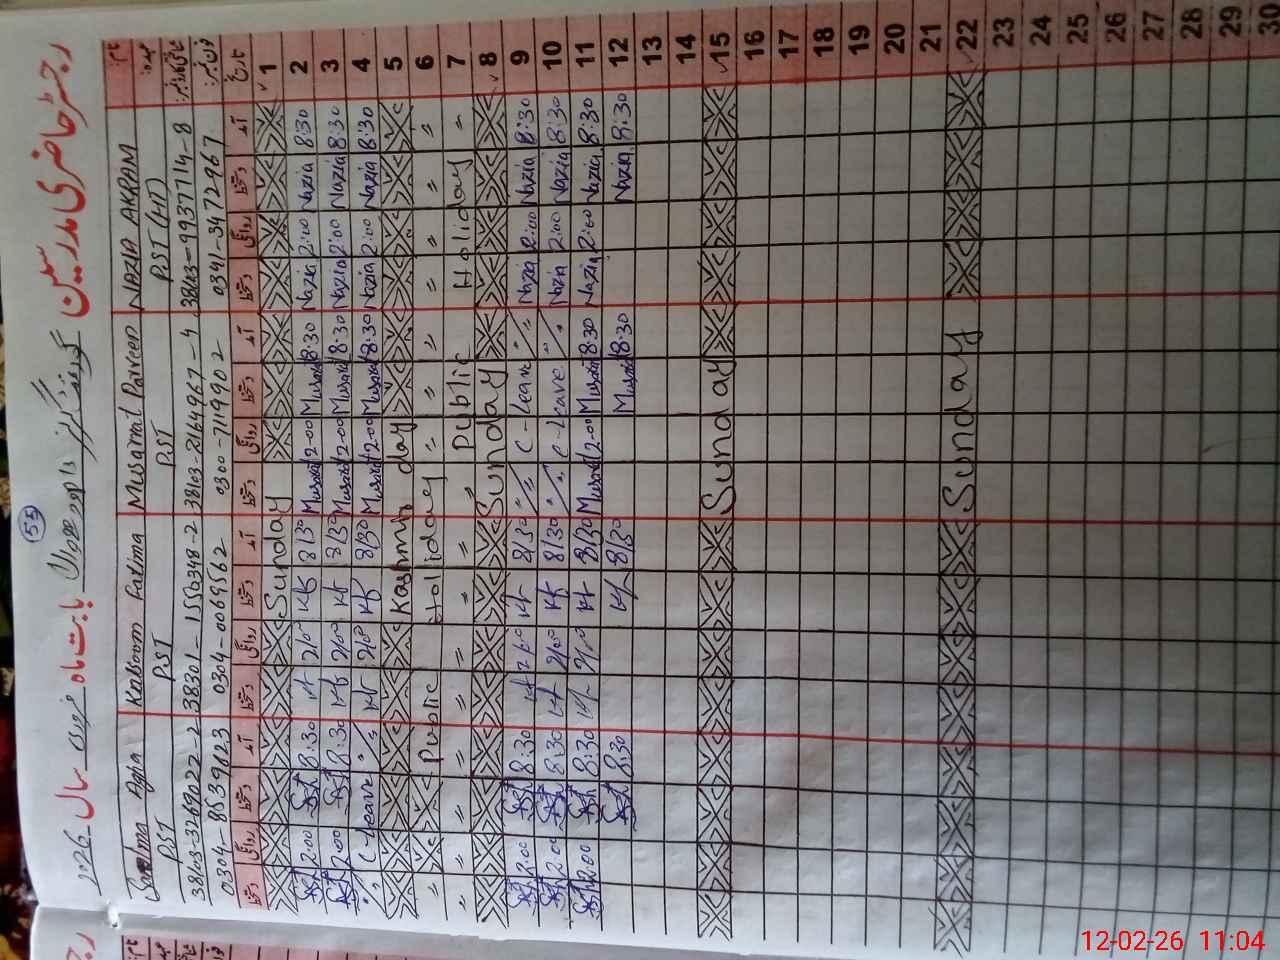 55
رجسٹر حاضری مدرسین گورنمنٹ گرلز بابت ماہ فروری سال 2026
نام: NAZIA AKRAM Musarrat Parveen Kalsoom Fatima Saeelma Agha
عہدہ: PST (HT) PST PST PST
شناختی کارڈ نمبر: 38103-9937714-8 38103-2164967-4 38301-1550348-2 38103-3269022-2
فون نمبر: 0341-3472967 0300-7119902 0304-0069562 0304-8539823
تاریخ آمد دستخط روانگی دستخط آمد دستخط روانگی دستخط آمد دستخط روانگی دستخط آمد دستخط روانگی دستخط
1 Sunday
2 8:30 Nazia 2:00 Nazia 8:30 Musarat 2:00 Musarat 8/30 2/00 8:30 2:00
3 8:30 Nazia 2:00 Nazia 8:30 Musarat 2:00 Musarat 8/30 2/00 8:30 2:00
4 8:30 Nazia 2:00 Nazia 8:30 Musarat 2:00 Musarat 8/30 2/00 C-Leave
5 Kashmir day
6 〃 〃 〃 〃 〃 〃 Holiday Public 〃
7 〃 Holiday Public 〃 〃 〃 〃 〃 〃 〃 〃
8 Sunday
9 8:30 Nazia 2:00 Nazia C-Leave 8/30 2/00 8:30 2:00
10 8:30 Nazia 2:00 Nazia C-Leave 8/30 2/00 8:30 2:00
11 8:30 Nazia 2:00 Nazia 8:30 Musarat 2:00 Musarat 8/30 2/00 8:30 2:00
12 8:30 Nazia 8:30 Musarat 8/30 8:30
13
14
15 Sunday
16
17
18
19
20
21
22 Sunday
23
24
25
26
27
28
29
30
12-02-26 11:04